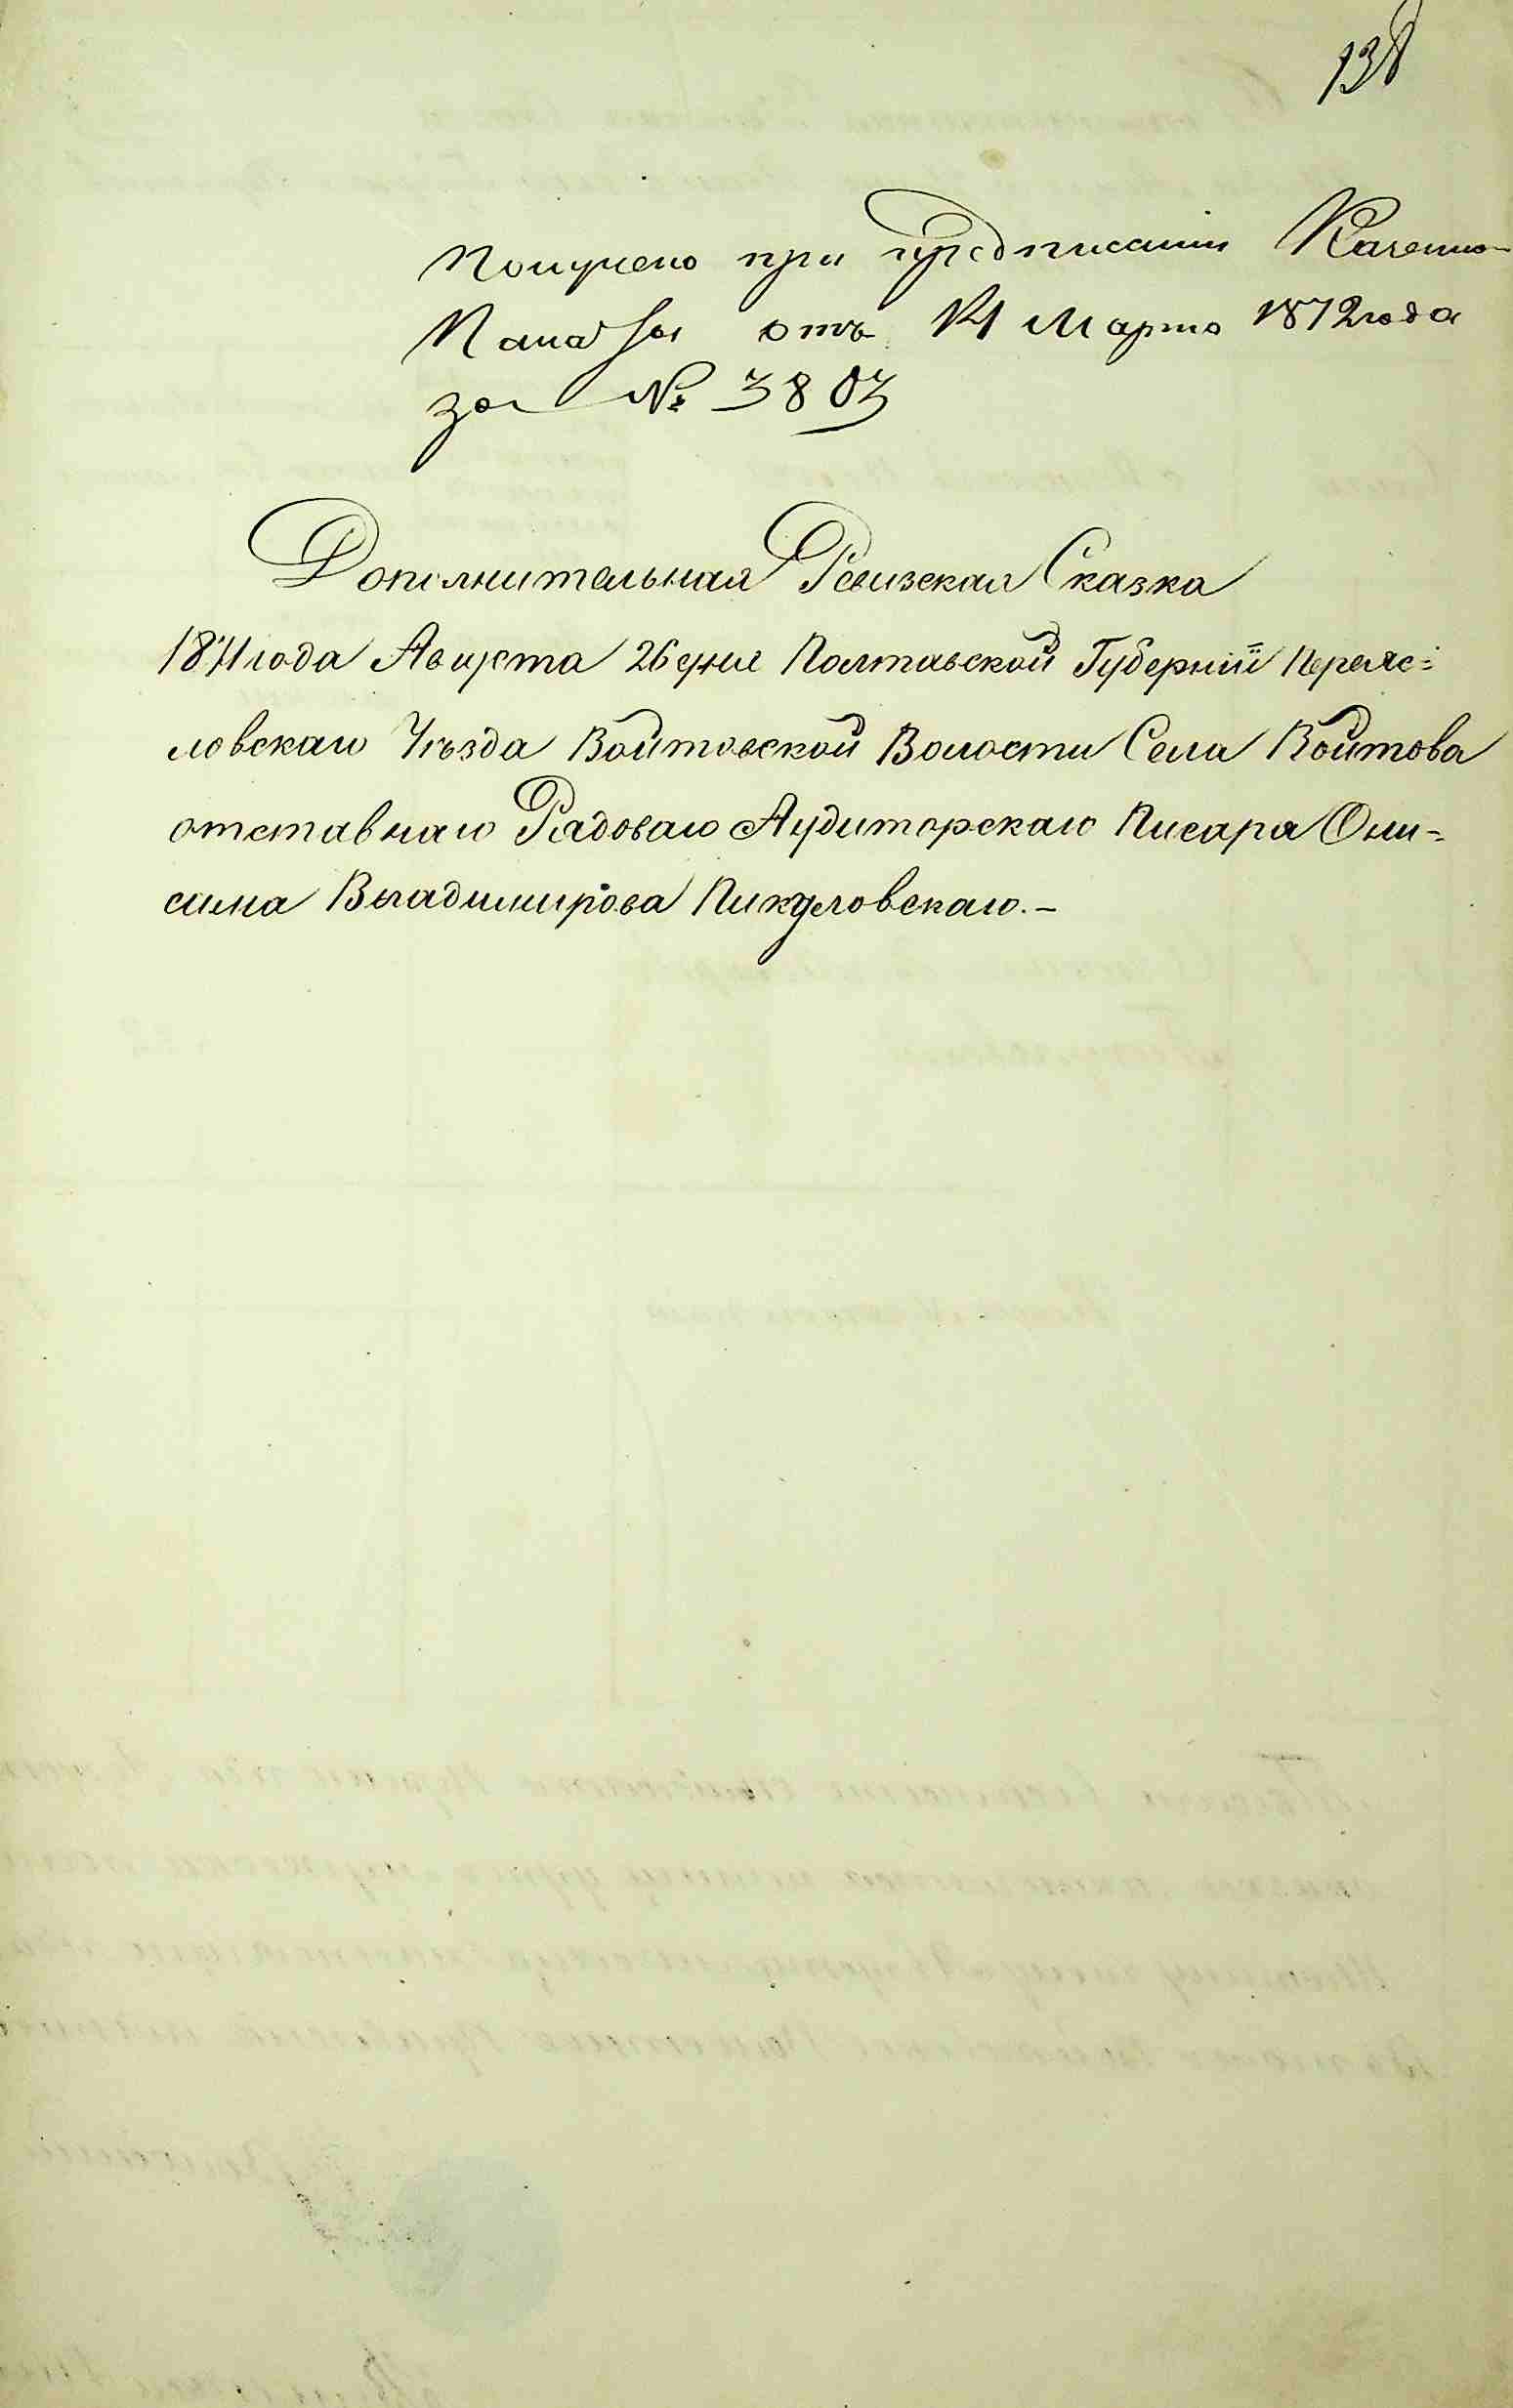 138
Получено при предписании Казенно-
Палаты отъ 14 Марта 1872 года
за № 3803
Дополнительная Ревизская Сказка
1871 года Августа 26 дня Полтавской Губерніи Переяс=
ловскаго Уѣзда Войтовской Волости Села Войтова
отставнаго Рядоваго Аудиторскаго Писара Они=
сима Владимирова Пикуловскаго.–